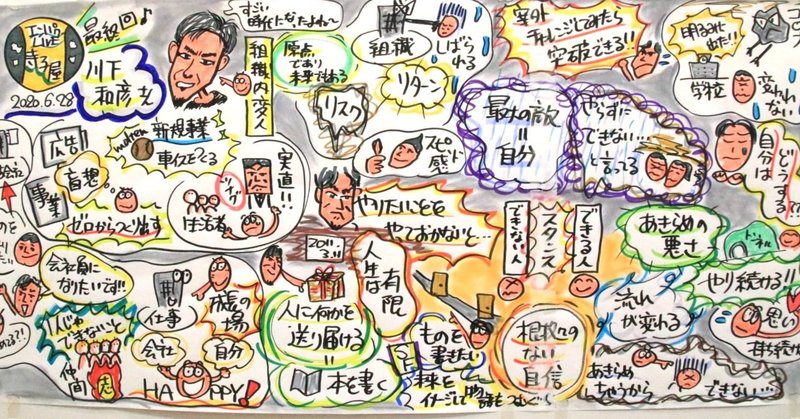 最終回♪
2020.6.28
川下
和彦さん
すごい
時代になったよね〜
組織内変人
原点
であり
未来でもある
組織
しばら
れる
リターン
リスク
スピード
感
案外
チャレンジしてみたら
突破できる!!
明るみに
出た!!
学校
コロナ
変われない
最大の敵
=
自分
やらずに
できない…
と言ってる
自分は
どうする?
広告
事業
妄想
新規事業
事化をつくる
ゼロからつくり出す
実直!!
生活者
やりたいことを
やっておかないと…
2011.
3.11
人生は有限
できない人
スタンス
できる人
あきらめの
悪さ
トンネル
やり続ける!!
会社員に
なりたいです!!
1人じゃ
できないこと
仲間
志
仕事
成長の場
会社
自分
HAPPY!
人に何かを
送り届ける
=
本を書く
ものを
書きたい
未来を
イメージして
物語をつむぐ
根拠の
ない
自信
流れ
が変わる
あきらめ
ちゃうから
できない…
思い
持ち続け